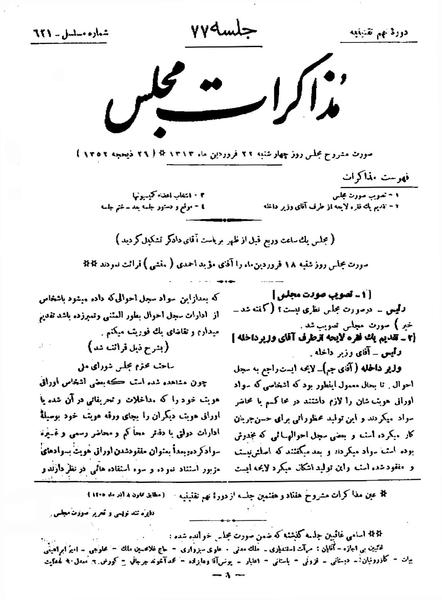 دورهٔ نهم تقنینیه
جلسه ۷۷
شماره مسلسل - ۶۲۱
مذاکرات مجلس
صورت مشروح مجلس روز چهارشنبه ۲۲ فروردین ماه ۱۳۱۳ * (۲۶ ذیحجه ۱۳۵۲)
فهرست مذاکرات
۱ - تصویب صورت مجلس
۲ - تقدیم یک فقره لایحه از طرف آقای وزیر داخله
۳ - انتخاب اعضاء کمیسیونها
۴ - موقع و دستور جلسه بعد - ختم جلسه
(مجلس یک ساعت و ربع قبل از ظهر بریاست آقای دادگر تشکیل گردید)
صورت مجلس روز شنبه ۱۸ فروردین ماه را آقای مؤید احمدی (منشی) قرائت نمودند **
[۱ - تصویب صورت مجلس]
رئیس - در صورت مجلس نظری نیست؟ (گفته شد -
خیر) صورت مجلس تصویب شد.
[۲ - تقدیم یک فقره لایحه از طرف آقای وزیر داخله]
رئیس - آقای وزیر داخله.
وزیر داخله (آقای جم) - لایحه ایست راجع به سجل
احوال. تا بحال معمول اینطور بود که اشخاصی که سواد
اوراق هویت شان را لازم داشتند در محاکم یا محاضر
سواد میکردند و این تولید محظوراتی برای حسن جریان
کار میکرده است و بعضی سجل احوالهائی که مخدوش
بوده است سواد میکردند و بعد میگفتند که اصلش نیست
و مفقود شده است و این تولید اشکال میکرد لایحه ایست
که بعد از این سواد سجل احوالی که داده میشود باشخاص
از ادارات سجل احوال بطور المثنی و تمبر زده باشد تقدیم
میدارم و تقاضای یک فوریت میکنم.
(بشرح ذیل قرائت شد)
ساحت محترم مجلس شورای ملی
چون مشاهده شده است که بعضی اشخاص اوراق
هویت خود را که مداخلات و تحریفاتی در آن شده یا
اوراق هویت دیگران را بجای ورقه هویت خود بوسیلهٔ
ادارات دولتی یا دفتر محاکم و محاضر رسمی و غیره
سواد کرده و بعداً بعنوان مفقود شدن اوراق هویت بسوادهای
مزبور استناد نموده و سوء استفاده هائی در نظر دارند و
* عین مذاکرات مشروح هفتاد و هفتمین جلسه از دورهٔ نهم تقنینیه (مطابق قانون ۸ آذر ماه ۱۳۰۵)
دایره تند نویسی و تحریر صورت مجلس
** اسامی غائبین جلسه گذشته که ضمن صورت مجلس خوانده شده:
غائبین بی اجازه - آقایان:
- ۱ -